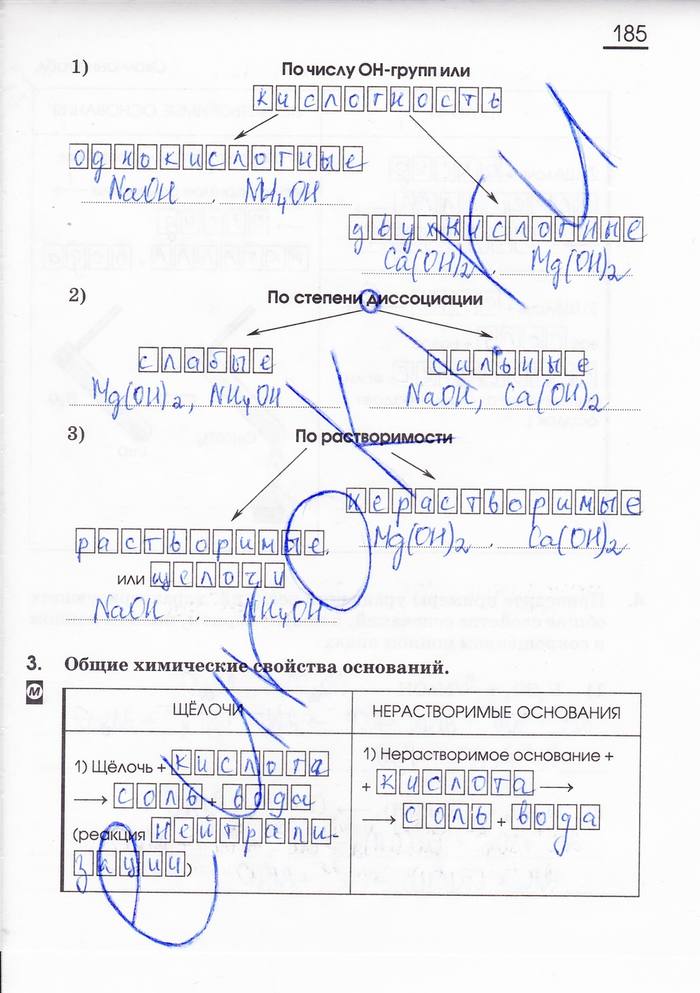 185
1) По числу ОН-групп или
кислотность
однокислотные
NaOH NH4OH
двухкислотные
Ca(OH)2 Mg(OH)2
2) По степени диссоциации
слабые сильные
Mg(OH)2, NH4OH NaOH, Ca(OH)2
3) По растворимости
нерастворимые
растворимые Mg(OH)2 Ca(OH)2
или щелочи
NaOH NH4OH
3. Общие химические свойства оснований.
М
ЩЁЛОЧИ НЕРАСТВОРИМЫЕ ОСНОВАНИЯ
1) Щёлочь + кислота
→ соль + вода
(реакция нейтрали-
зации)
1) Нерастворимое основание +
+ кислота →
→ соль + вода